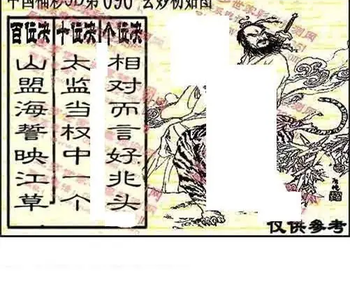 中国福彩3D第090
百位决
十位决
个位决
山盟海誓映江草
太监当权中一个
相对而言好兆头
仅供参考